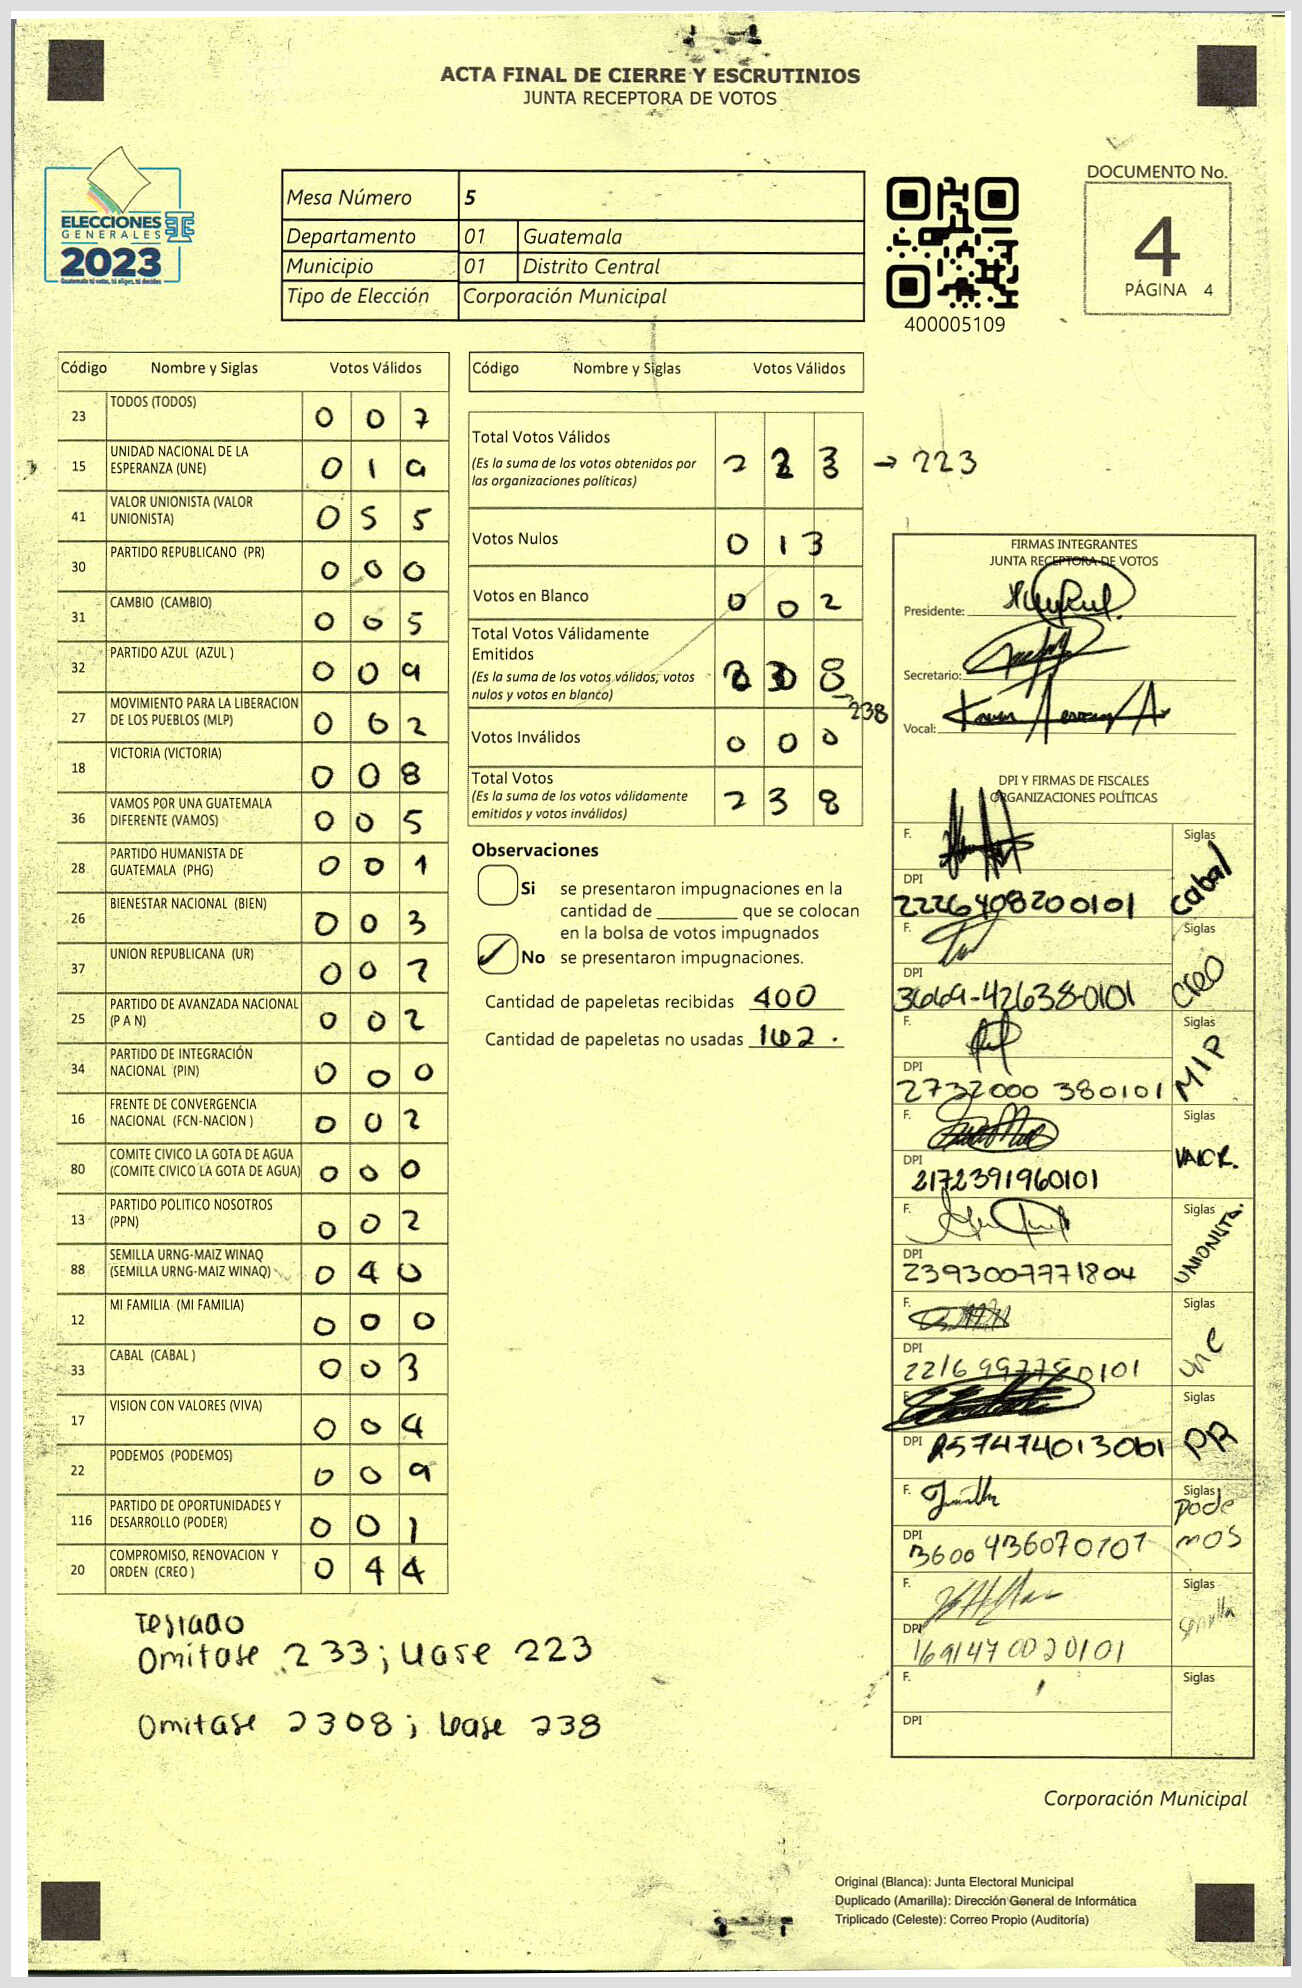 ACTA FINAL DE CIERRE Y ESCRUTINIOS
JUNTA RECEPTORA DE VOTOS
ELECCIONES
GENERALES
2023
Guatemala tú votas, tú eliges, tú decides
Mesa Número 5
Departamento 01 Guatemala
Municipio 01 Distrito Central
Tipo de Elección Corporación Municipal
400005109
DOCUMENTO No.
4
PÁGINA 4
Código Nombre y Siglas Votos Válidos
23 TODOS (TODOS) 0 0 7
15 UNIDAD NACIONAL DE LA
ESPERANZA (UNE) 0 1 9
41 VALOR UNIONISTA (VALOR
UNIONISTA) 0 5 5
30 PARTIDO REPUBLICANO (PR) 0 0 0
31 CAMBIO (CAMBIO) 0 0 5
32 PARTIDO AZUL (AZUL ) 0 0 9
27 MOVIMIENTO PARA LA LIBERACION
DE LOS PUEBLOS (MLP) 0 0 2
18 VICTORIA (VICTORIA) 0 0 8
36 VAMOS POR UNA GUATEMALA
DIFERENTE (VAMOS) 0 0 5
28 PARTIDO HUMANISTA DE
GUATEMALA (PHG) 0 0 1
26 BIENESTAR NACIONAL (BIEN) 0 0 3
37 UNION REPUBLICANA (UR) 0 0 7
25 PARTIDO DE AVANZADA NACIONAL
(P A N) 0 0 2
34 PARTIDO DE INTEGRACIÓN
NACIONAL (PIN) 0 0 0
16 FRENTE DE CONVERGENCIA
NACIONAL (FCN-NACION ) 0 0 2
80 COMITE CIVICO LA GOTA DE AGUA
(COMITE CIVICO LA GOTA DE AGUA) 0 0 0
13 PARTIDO POLITICO NOSOTROS
(PPN) 0 0 2
88 SEMILLA URNG-MAIZ WINAQ
(SEMILLA URNG-MAIZ WINAQ) 0 4 0
12 MI FAMILIA (MI FAMILIA) 0 0 0
33 CABAL (CABAL ) 0 0 3
17 VISION CON VALORES (VIVA) 0 0 4
22 PODEMOS (PODEMOS) 0 0 9
116 PARTIDO DE OPORTUNIDADES Y
DESARROLLO (PODER) 0 0 1
20 COMPROMISO, RENOVACION Y
ORDEN (CREO ) 0 4 4
Testado
Omitase 233; Lease 223
Omitase 2308; Lease 238
Código Nombre y Siglas Votos Válidos
Total Votos Válidos
(Es la suma de los votos obtenidos por
las organizaciones políticas) 2 2 3 → 223
Votos Nulos 0 1 3
Votos en Blanco 0 0 2
Total Votos Válidamente
Emitidos
(Es la suma de los votos válidos, votos
nulos y votos en blanco) 2 3 8
→ 238
Votos Inválidos 0 0 0
Total Votos
(Es la suma de los votos válidamente
emitidos y votos inválidos) 2 3 8
Observaciones
Si se presentaron impugnaciones en la
cantidad de ________ que se colocan
en la bolsa de votos impugnados
No se presentaron impugnaciones.
Cantidad de papeletas recibidas 400
Cantidad de papeletas no usadas 162.
FIRMAS INTEGRANTES
JUNTA RECEPTORA DE VOTOS
Presidente:
Secretario:
Vocal:
DPI Y FIRMAS DE FISCALES
ORGANIZACIONES POLÍTICAS
F. Siglas
DPI
2226408200101 Cabal
F. Siglas
DPI
3669-42638-0101 CREO
F. Siglas
DPI
2732000 380101 MLP
F. Siglas
DPI
2172391960101 VALOR.
F. Siglas
DPI
2393007771804 UNIONISTA.
F. Siglas
DPI
0101 une
F. Siglas
DPI PR
F. Siglas
DPI
3600 436070101 podemos
F. Siglas
DPI
1691470020101 semilla
F. Siglas
DPI
Corporación Municipal
Original (Blanca): Junta Electoral Municipal
Duplicado (Amarilla): Dirección General de Informática
Triplicado (Celeste): Correo Propio (Auditoría)